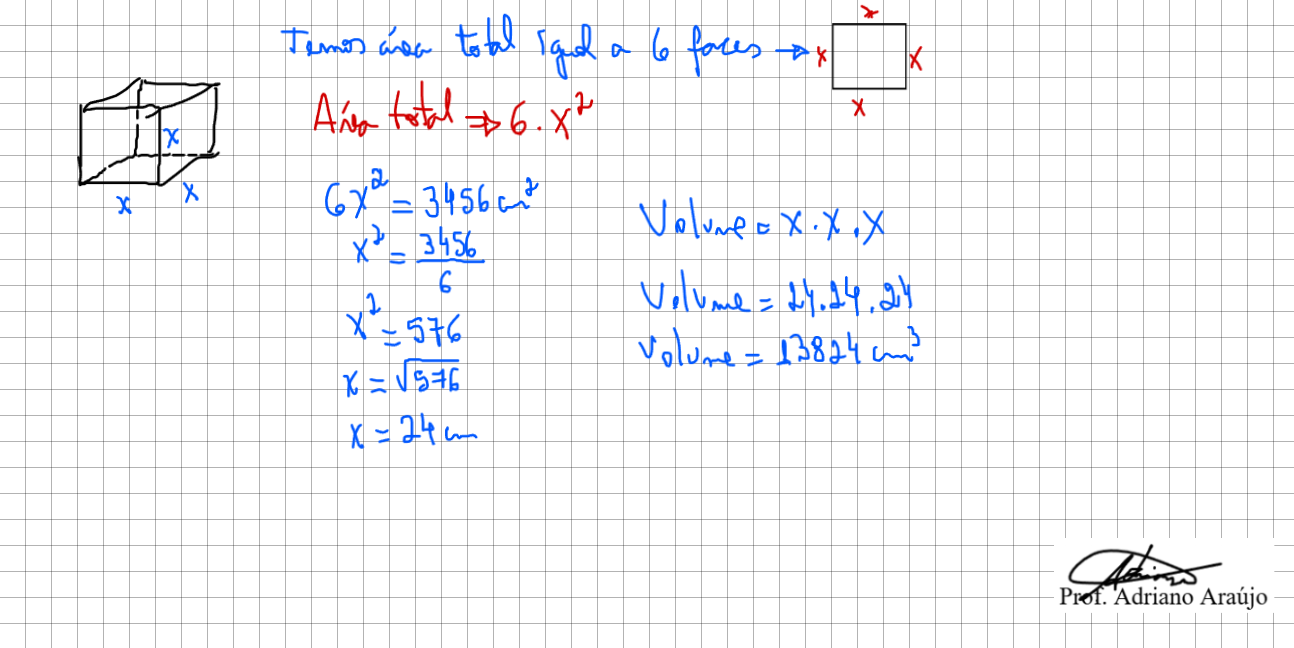 Temos área total igual a 6 faces →
x
x
x
x
Área total ⇒ 6 . x²
x
x
x
6x² = 3456 cm²
x² = 3456/6
x² = 576
x = √576
x = 24 cm
Volume = x . x . x
Volume = 24.24.24
Volume = 13824 cm³
Prof. Adriano Araújo